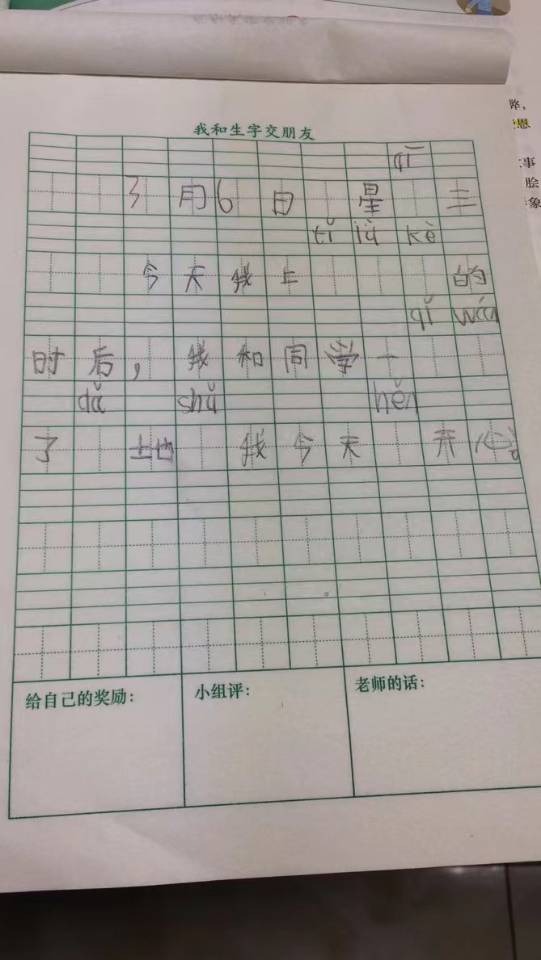 我和生字交朋友
qī
3月6日 星 三
tǐ iù kè
今天我上 的
qǐ wán
时后，我和同学一
dǎ shǔ hěn
了 地 我今天 开心。
给自己的奖励： 小组评： 老师的话：
事
脸
象